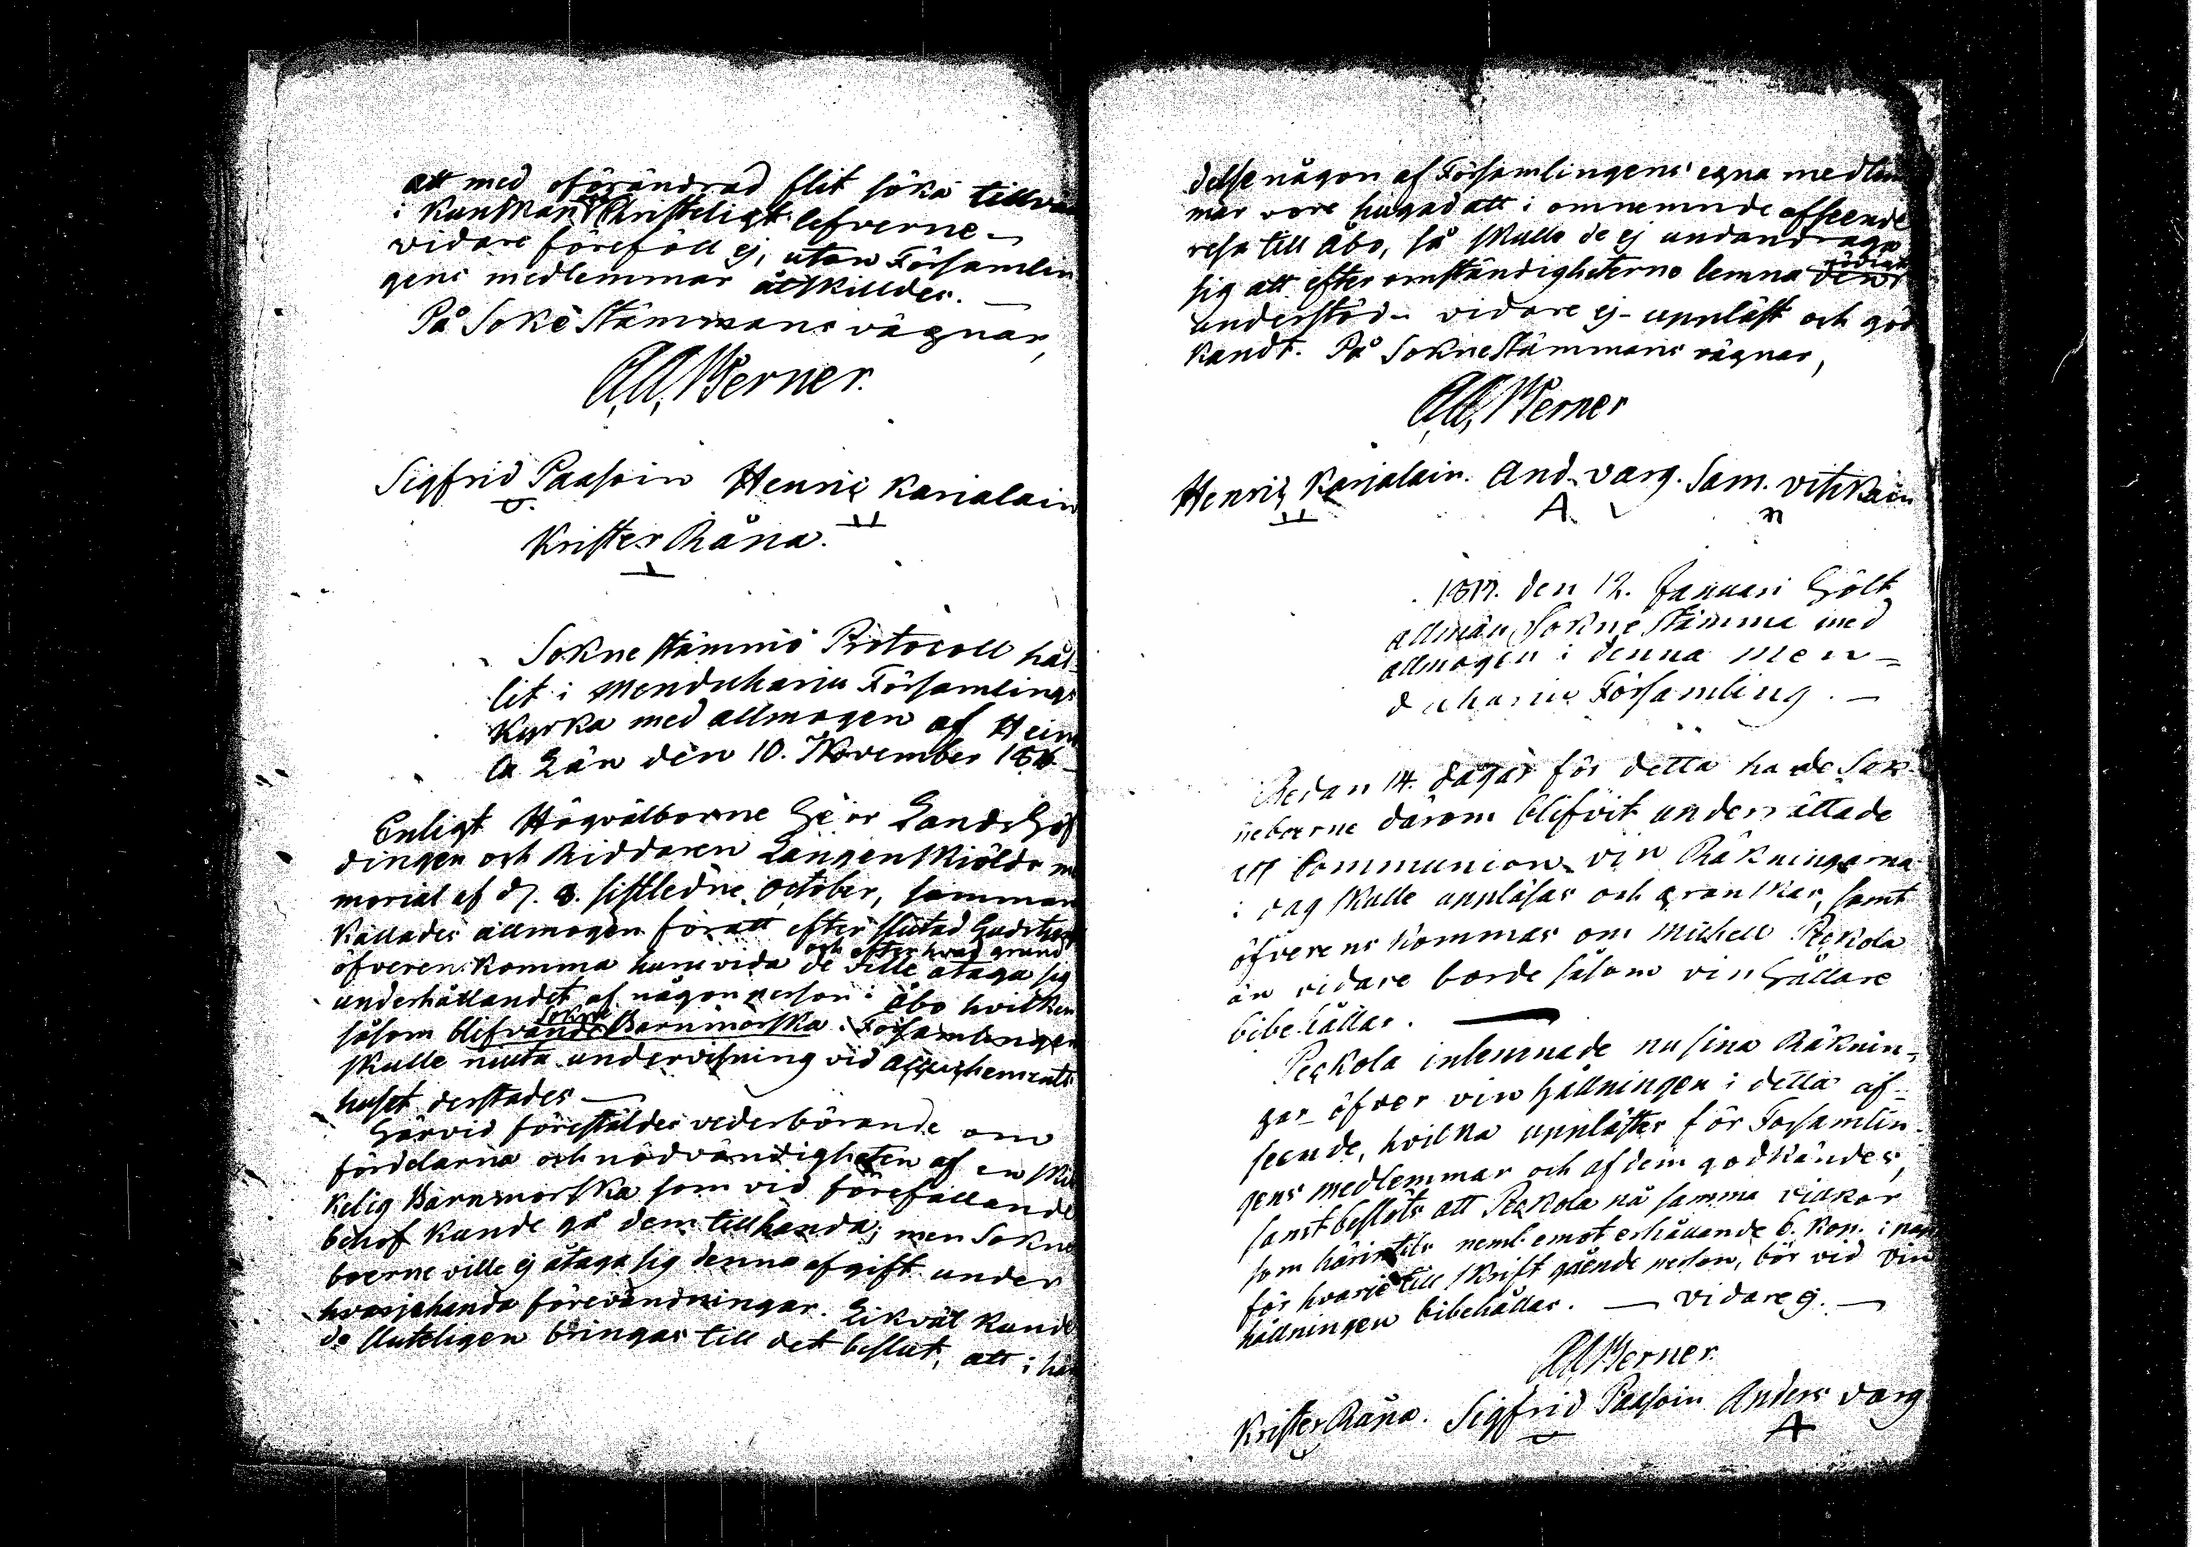 att med oförändrad flit söka tillväxa
i kunskap i Christeligt lefverne.
vidare föreföll ej, utan Församlin
gens medlemmar åtskilldes. —
På Sokne Stämmans vägnar,
A. A. Werner.
Sigfrid Paasoin Henric Karialain
Krister Råna.
Sokne stämmo Protocoll hål-
lit i Menduharju Församlings
Kyrka med allmogen af Hein
la Län den 10. November 1816
Enligt Högvälborne Herr Landshöf
dingen och Riddaren Langenskiölds me
morial af d. 8. sistledne October, samman
kallades allmogen för att efter slutad Gudstjenst
öfverenskomma huruvida de och efter hvad grund ville åtaga sig
underhållandet af någon person i Åbo hvilken
såsom blifvande Sokne Barnmorska i Församlingen
skulle niuta undervisning vid accouchements
huset derstädes —
Härvid föreställdes vederbörande om
fördelarna och nödvändigheten af en skic
kelig Barnmorska som vid förefallande
behof kunde gå dem tillhanda; men Sokne
boerne ville ej åtaga sig denna afgift under
hvarjehanda förevändningar. Likväl kunde
de sluteligen bringas till det beslut, att i hän
delse någon af Församlingens egna medlem
mar vore hugad att i omnemnde afseende
resa till Åbo, så skulle de ej undandraga
sig att efter omständigheterne lemna den
understöd. vidare ej - uppläst och god
kändt. På Sokne Stämmans vägnar,
A. A. Werner
Henric Karjalain. And. Varg. Sam. Vitikain
A.
1817. den 12. Januari hölt
allmän Sokne Stämma med
allmogen i denna Men-
duharju Församling. —
Redan 14. dagar för detta hade Sok-
neboerne därom blifvit underrättade
att Communion vin Räkningarna
i dag skulle uppläsas och granskas, samt
öfverenskommas om Michell Peckola
än vidare borde såsom vinhållare
bibehållas. —
Peckola inlemnade nu sina Räknin-
gar öfver vinhållningen i detta af-
seende, hvilka upplästes för Församlin-
gens medlemmar och af dem godkändes,
samt beslöts att Peckola på samma vilkor
som härintils neml. emot erhållande 6. kop. i
för hvarje till skrift gående person, bör vid vin
hållningen bibehållas. — vidare ej. —
A. A. Werner.
Krister Råna. Sigfrid Paasoin Anders Varg
A